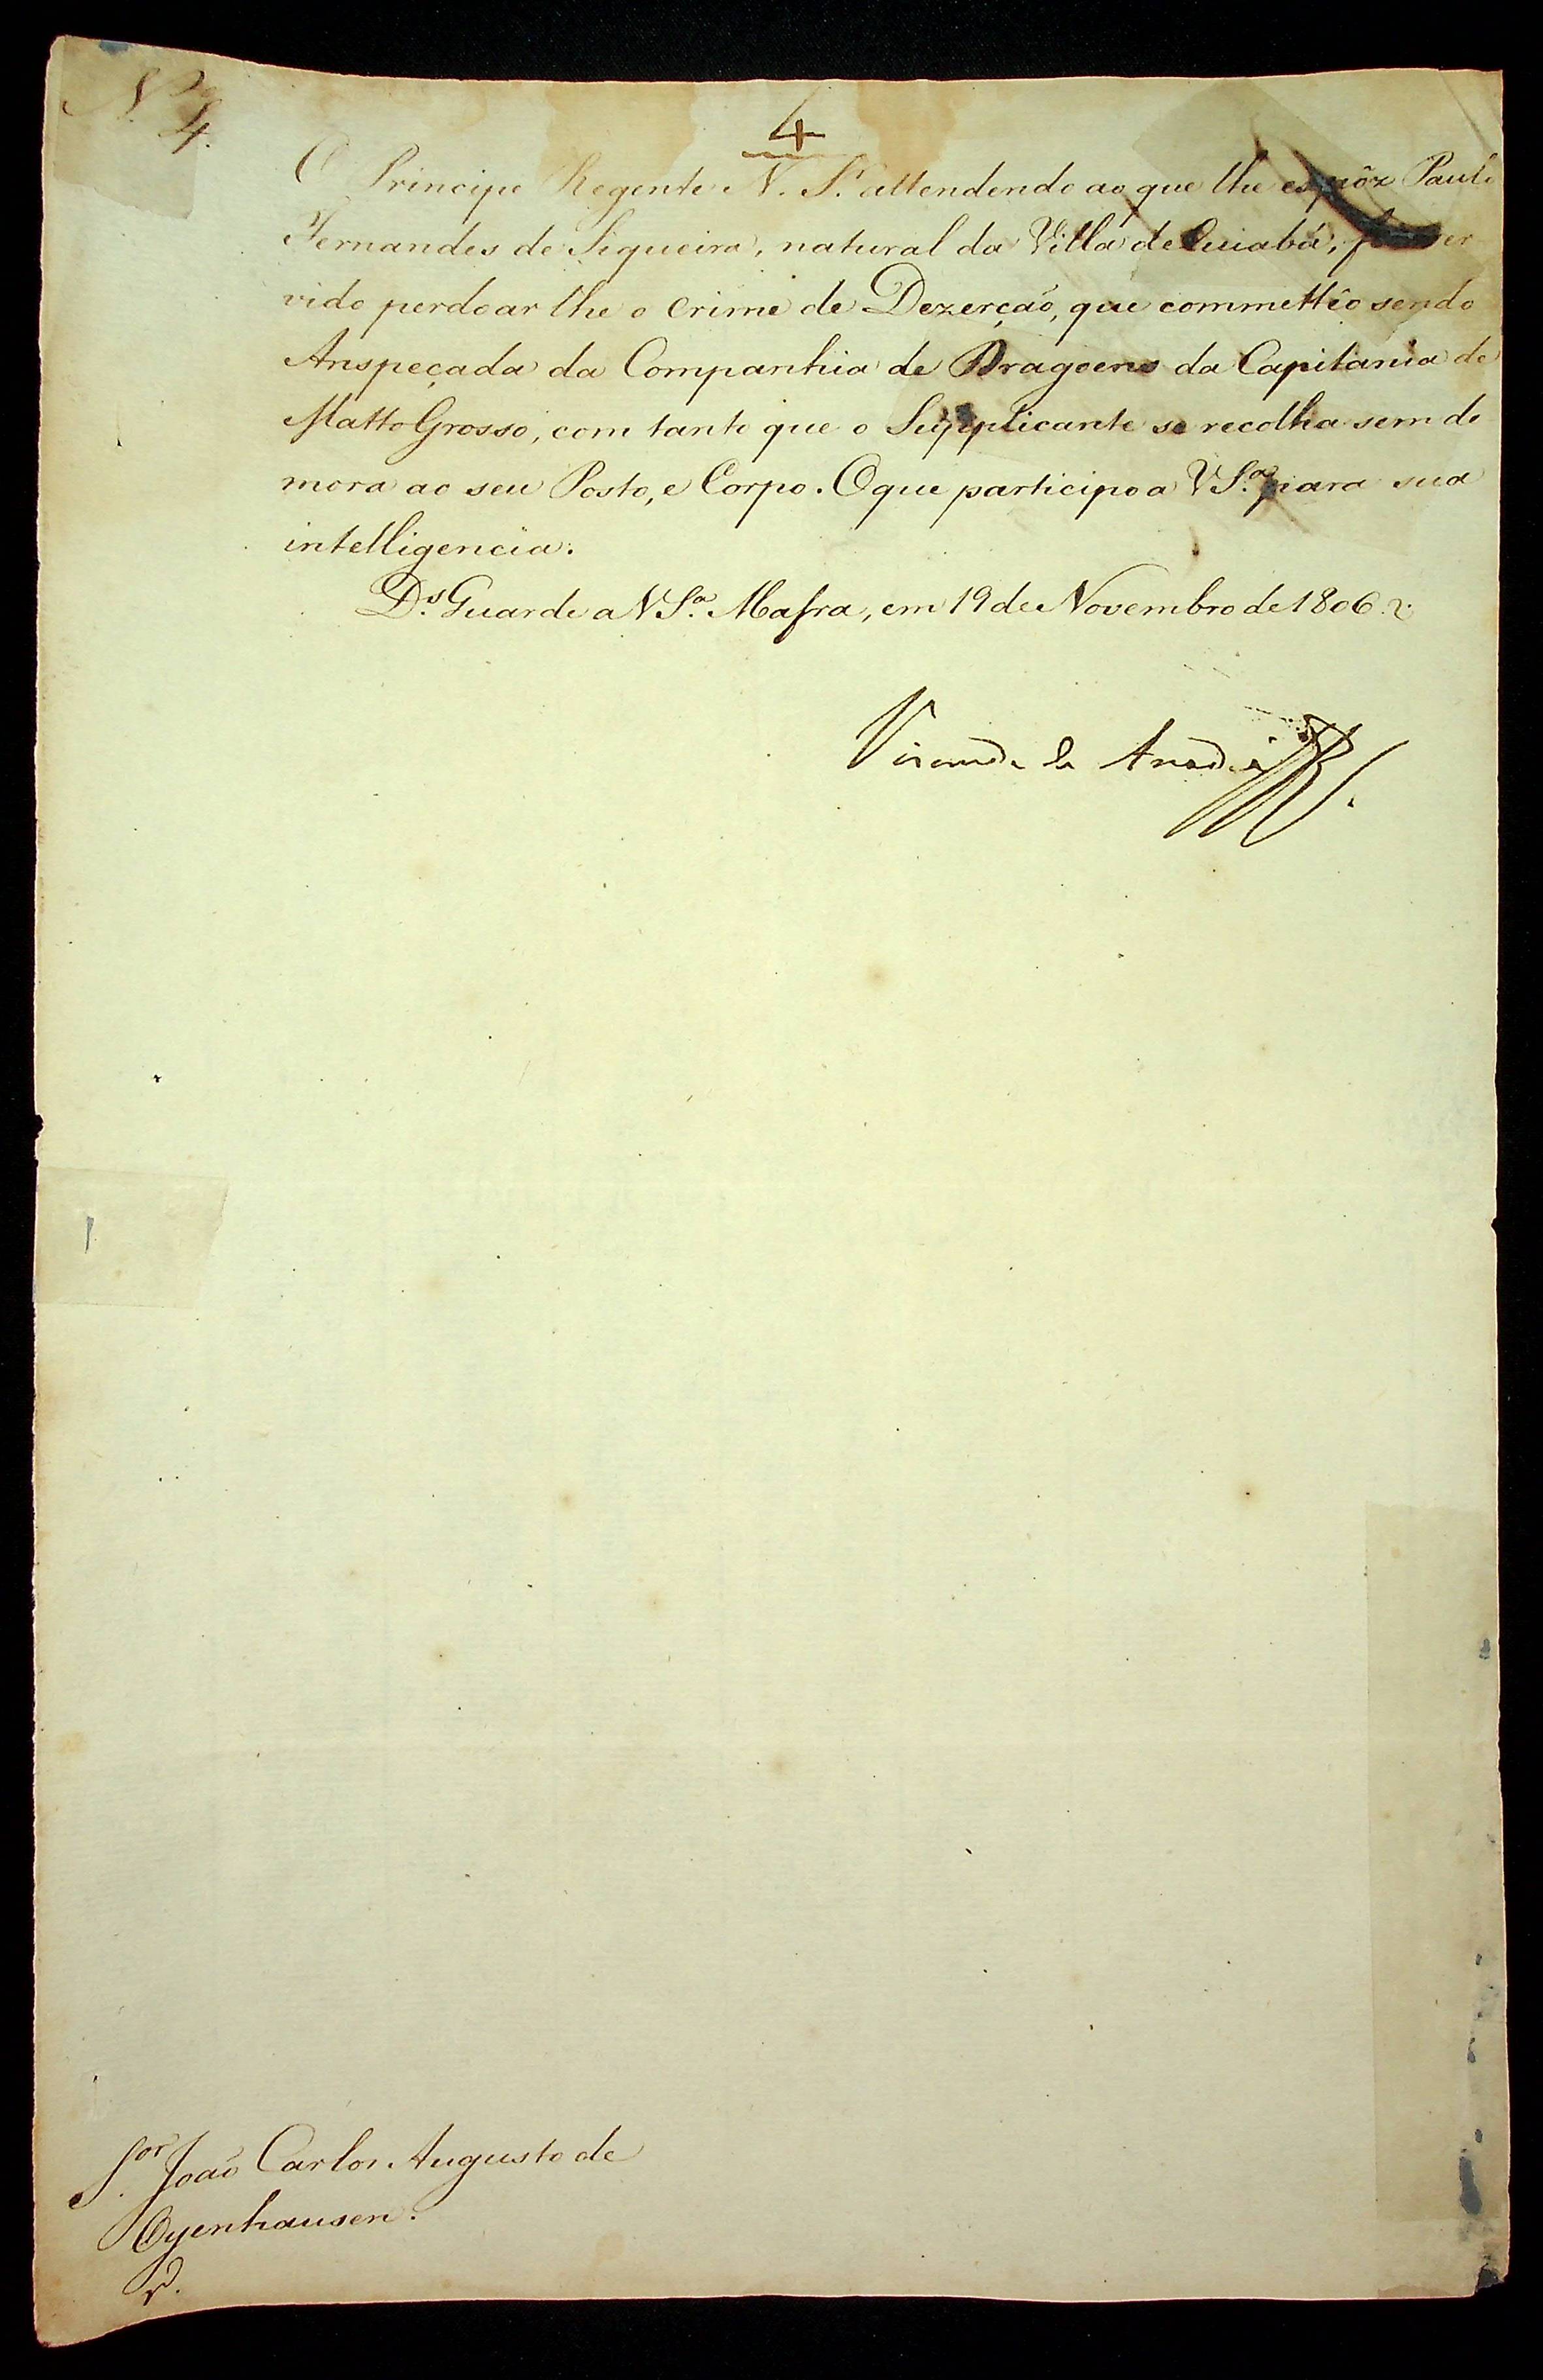 N.º 4.
4
O Principe Regente N. S.r attendendo ao que lhe espôz Paulo
Fernandes de Siqueira, natural da Villa de Cuiabá, ser
vido perdoar lhe o Crime de Dezerção, que commettêo sendo
Anspeçada da Companhia de Dragoens da Capitania de
Matto Grosso, com tanto que o Supplicante se recolha sem de
mora ao seu Posto, e Corpo. O que participo a V S.ª para sua
intelligencia.
D.s Guarde a V S.ª Mafra, em 19 de Novembro de 1806.
Visconde de Anadia
S.or João Carlos Augusto de
Oyenhausen.